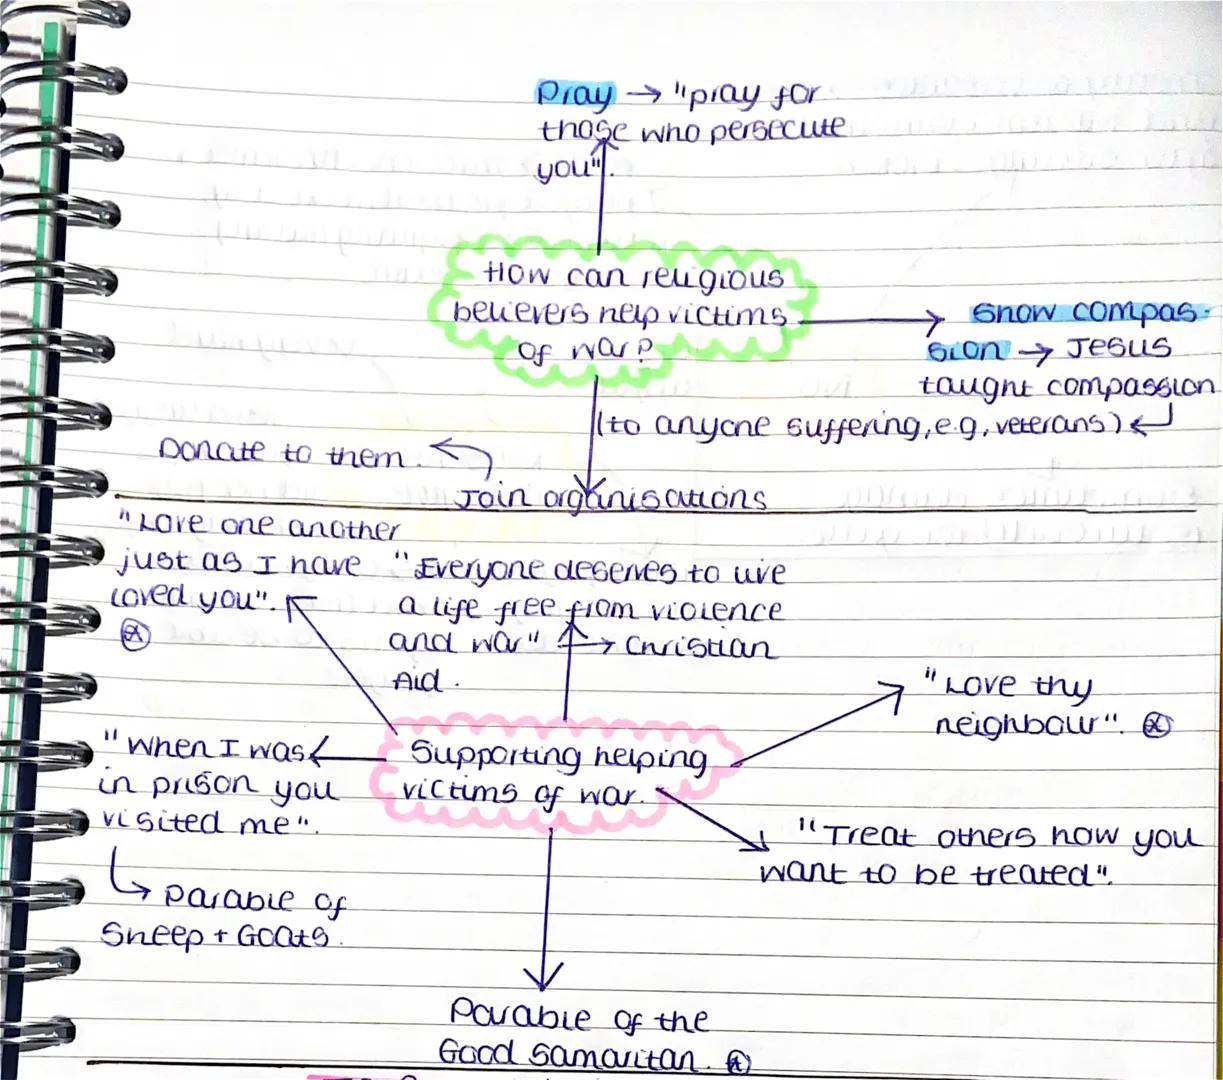 Pray → "pray for
those who persecute
you".
How can religious
believers help victims
of war?
Show compas-
sion → Jesus
taught compassion
(to anyone suffering, e.g, veterans)
Donate to them.
Join organisations
"Love one another
just as I have
loved you".
"Everyone deserves to live
a life free from violence
and war" → Christian
Aid.
"Love thy
neighbour".
"When I was
in prison you
visited me".
Supporting helping
victims of war.
"Treat others how you
want to be treated".
→ Parable of
Sheep + Goats.
Parable of the
Good Samaritan.